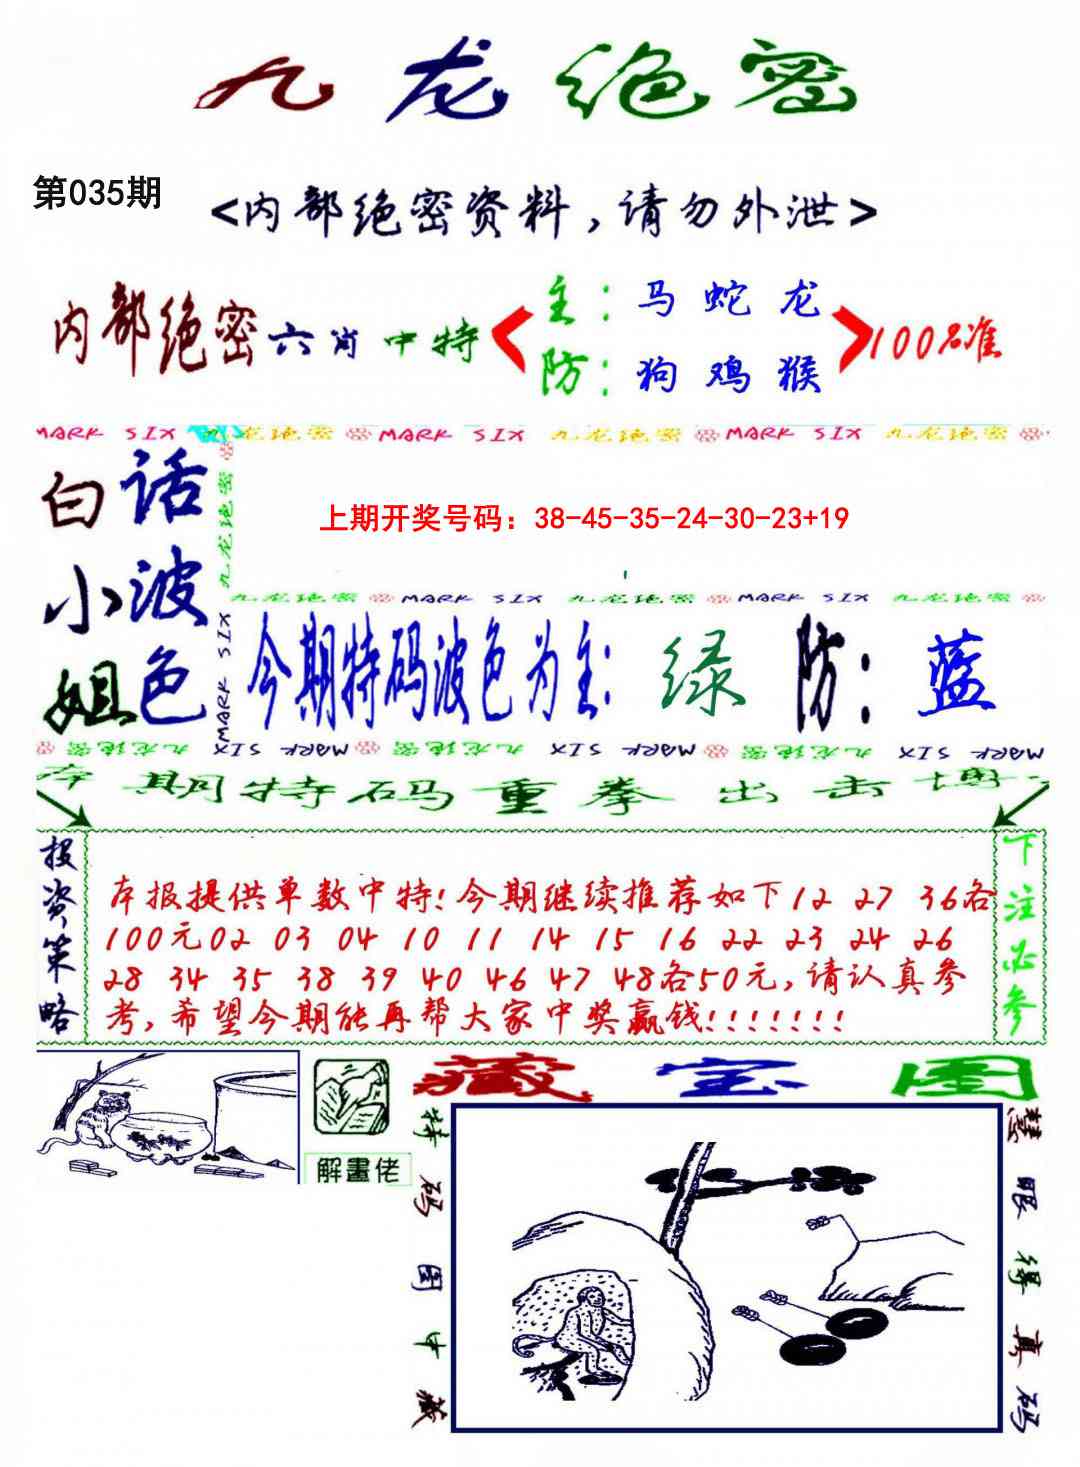 九龙绝密
第035期
<内部绝密资料,请勿外泄>
内部绝密六肖中特
主：马 蛇 龙
防：狗 鸡 猴
100%准
MARK SIX 九龙绝密 MARK SIX 九龙绝密 MARK SIX 九龙绝密
白话小波姐色
九龙绝密
MARK SIX
上期开奖号码：38-45-35-24-30-23+19
九龙绝密 MARK SIX 九龙绝密 MARK SIX 九龙绝密
今期特码波色为主：绿 防：蓝
九龙绝密 MARK SIX 九龙绝密 MARK SIX 九龙绝密 MARK SIX
本期特码重拳出击博
投资策略
本报提供单数中特!今期继续推荐如下12 27 36各
100元02 03 04 10 11 14 15 16 22 23 24 26
28 34 35 38 39 40 46 47 48各50元,请认真参
考,希望今期能再帮大家中奖赢钱!!!!!!!
下注必参
解畫佬
藏宝图
特码图中藏
慧眼得真码